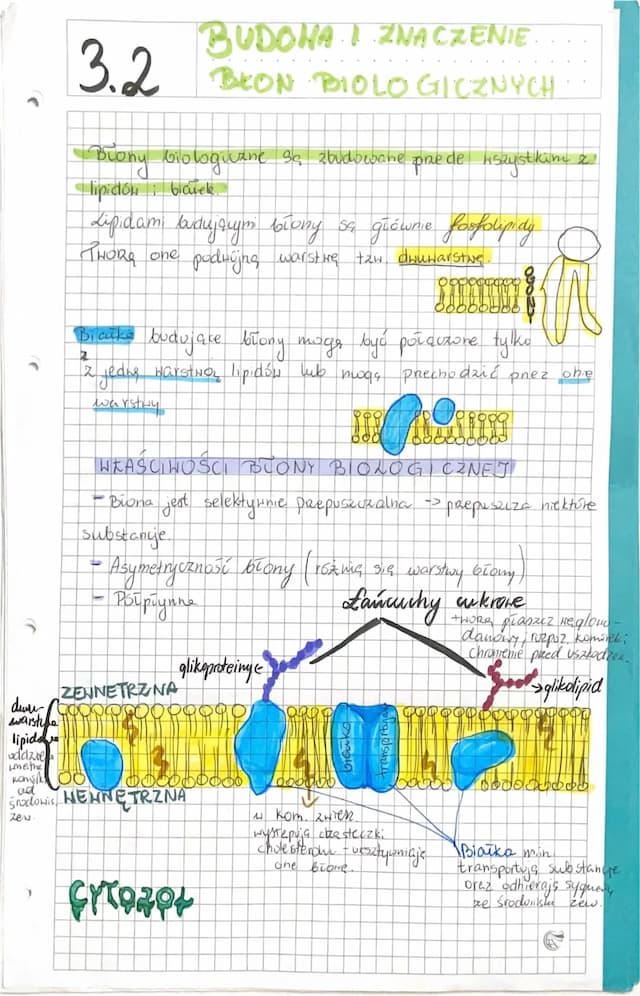 3.2
BUDOWA I ZNACZENIE
BŁON BIOLOGICZNYCH
Błony biologiczne są zbudowane przede wszystkim z
lipidów i białek.
Lipidami budującymi błony są głównie fosfolipidy
Tworą one podwójną warstwę tzw. dwuwarstwę.
OGONY
Białka budujące błony mogą być połączone tylko
z
z jedną warstwą lipidów lub mogą przechodzić przez obie
warstwy
WŁAŚCIWOŚCI BŁONY BIOLOGICZNEJ
- Błona jest selektywnie przepuszczalna -> przepuszcza niektóre
substancje.
- Asymetryczność błony (różnią się warstwy błony)
- Półpłynne
Łańcuchy cukrowe
tworą płaszcz węglowo-
danowy, rozpoz. komórek i
chronienie przed uszkodze.
glikoproteiny
->glikolipid
ZEWNĘTRZNA
dwu-
warstwa
lipidowa
oddziela
wnętrze
komórki
od
środowis.
zew.
białka
transportujące
WEWNĘTRZNA
w kom. zwierz.
występują cząsteczki
cholesterolu - usztywniają
one błonę.
Białka m.in.
transportują substancje
oraz odbierają sygnały
ze środowiska zew.
CYTOZOL